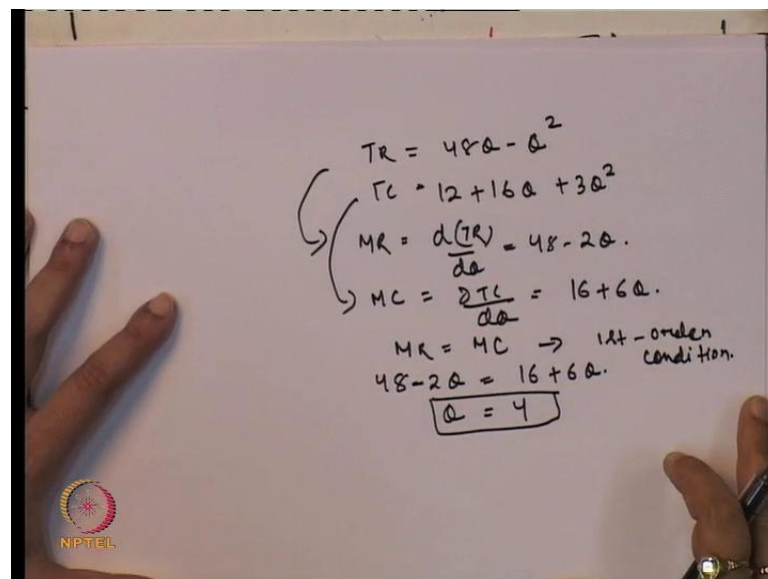 TR = 48Q - Q²
TC = 12 + 16Q + 3Q²
MR = d(TR)/dQ = 48 - 2Q.
MC = ∂TC/dQ = 16 + 6Q.
MR = MC → 1st-order condition.
48 - 2Q = 16 + 6Q.
Q = 4
NPTEL